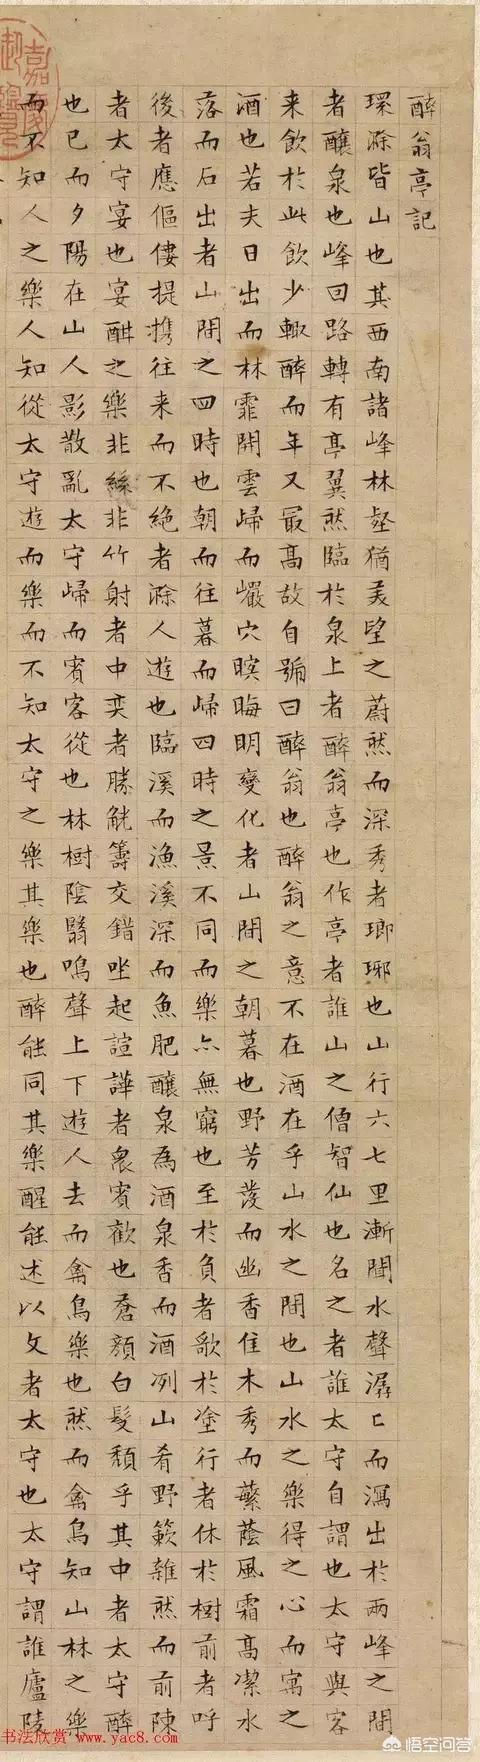 醉翁亭記
環滁皆山也其西南諸峰林壑猶美望之蔚然而深秀者瑯琊也山行六七里漸聞水聲潺〻而瀉出於兩峰之間
者釀泉也峰回路轉有亭翼然臨於泉上者醉翁亭也作亭者誰山之僧智仙也名之者誰太守自謂也太守與客
来飲於此飲少輒醉而年又最高故自號曰醉翁也醉翁之意不在酒在乎山水之間也山水之樂得之心而寓之
酒也若夫日出而林霏開雲歸而巖穴暝晦明變化者山間之朝暮也野芳發而幽香佳木秀而繁蔭風霜高潔水
落而石出者山間之四時也朝而往暮而歸四時之景不同而樂亦無窮也至於負者歌於塗行者休於樹前者呼
後者應傴僂提携往来而不絕者滁人遊也臨溪而漁溪深而魚肥釀泉為酒泉香而酒冽山肴野蔌雜然而前陳
者太守宴也宴酣之樂非絲非竹射者中奕者勝觥籌交錯坐起諠譁者衆賓歡也蒼顏白髮頹乎其中者太守醉
也已而夕陽在山人影散亂太守歸而賓客從也林樹陰翳鳴聲上下遊人去而禽鳥樂也然而禽鳥知山林之樂
而不知人之樂人知從太守遊而樂而不知太守之樂其樂也醉能同其樂醒能述以文者太守也太守謂誰廬陵
书法欣赏 www.yac8.com
悟空问答